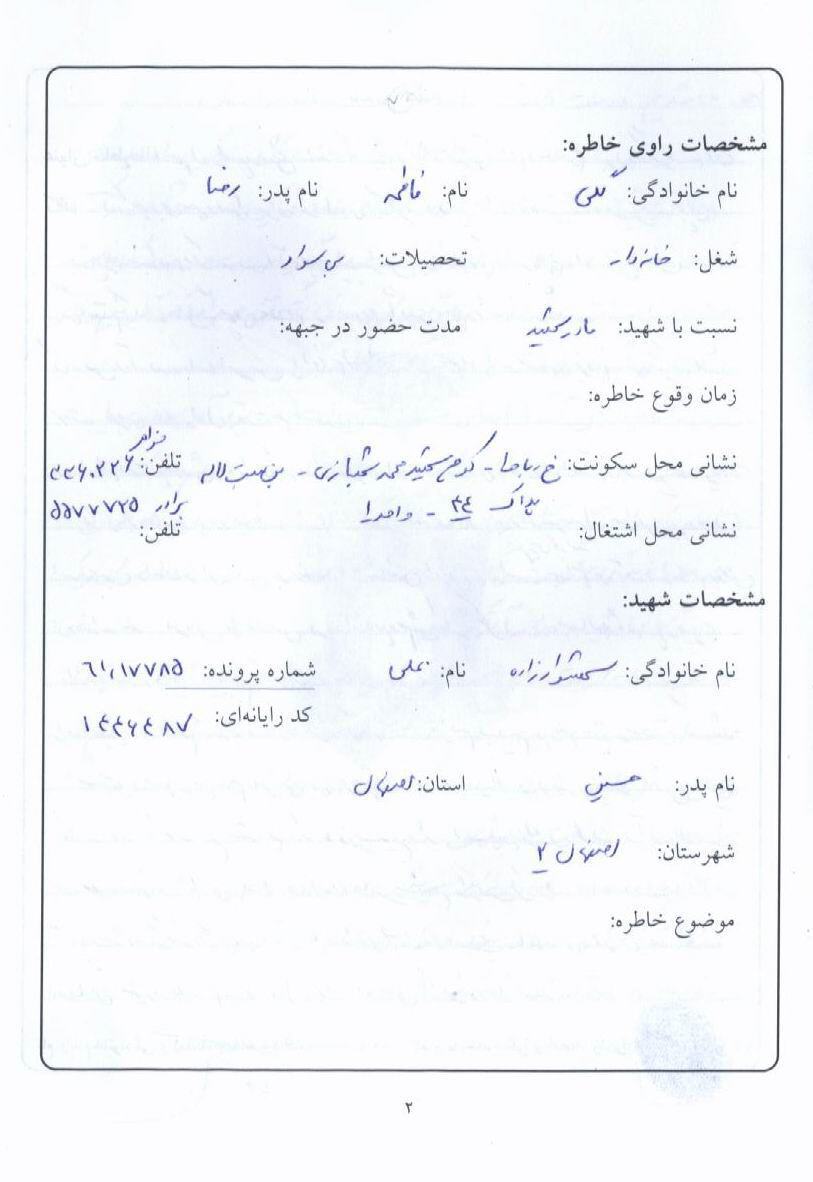 مشخصات راوی خاطره:
نام خانوادگی: گلی نام: فاطمه نام پدر: رضا
شغل: خانه‌دار تحصیلات: بی سواد
نسبت با شهید: مادر شهید مدت حضور در جبهه:
زمان وقوع خاطره:
نشانی محل سکونت: خ - کوی شهید محمد - بن بست لاله تلفن:
پلاک ۳۴ - واحد ۱ برادر ۵۵۷۷۷۲۵
نشانی محل اشتغال: تلفن:
مشخصات شهید:
نام خانوادگی: نام: علی شماره پرونده: ۶۱۰۱۷۷۸۵
کد رایانه‌ای: ۱۴۴۶۴۸۷
نام پدر: حسین استان: اصفهان
شهرستان: اصفهان ۲
موضوع خاطره:
۲